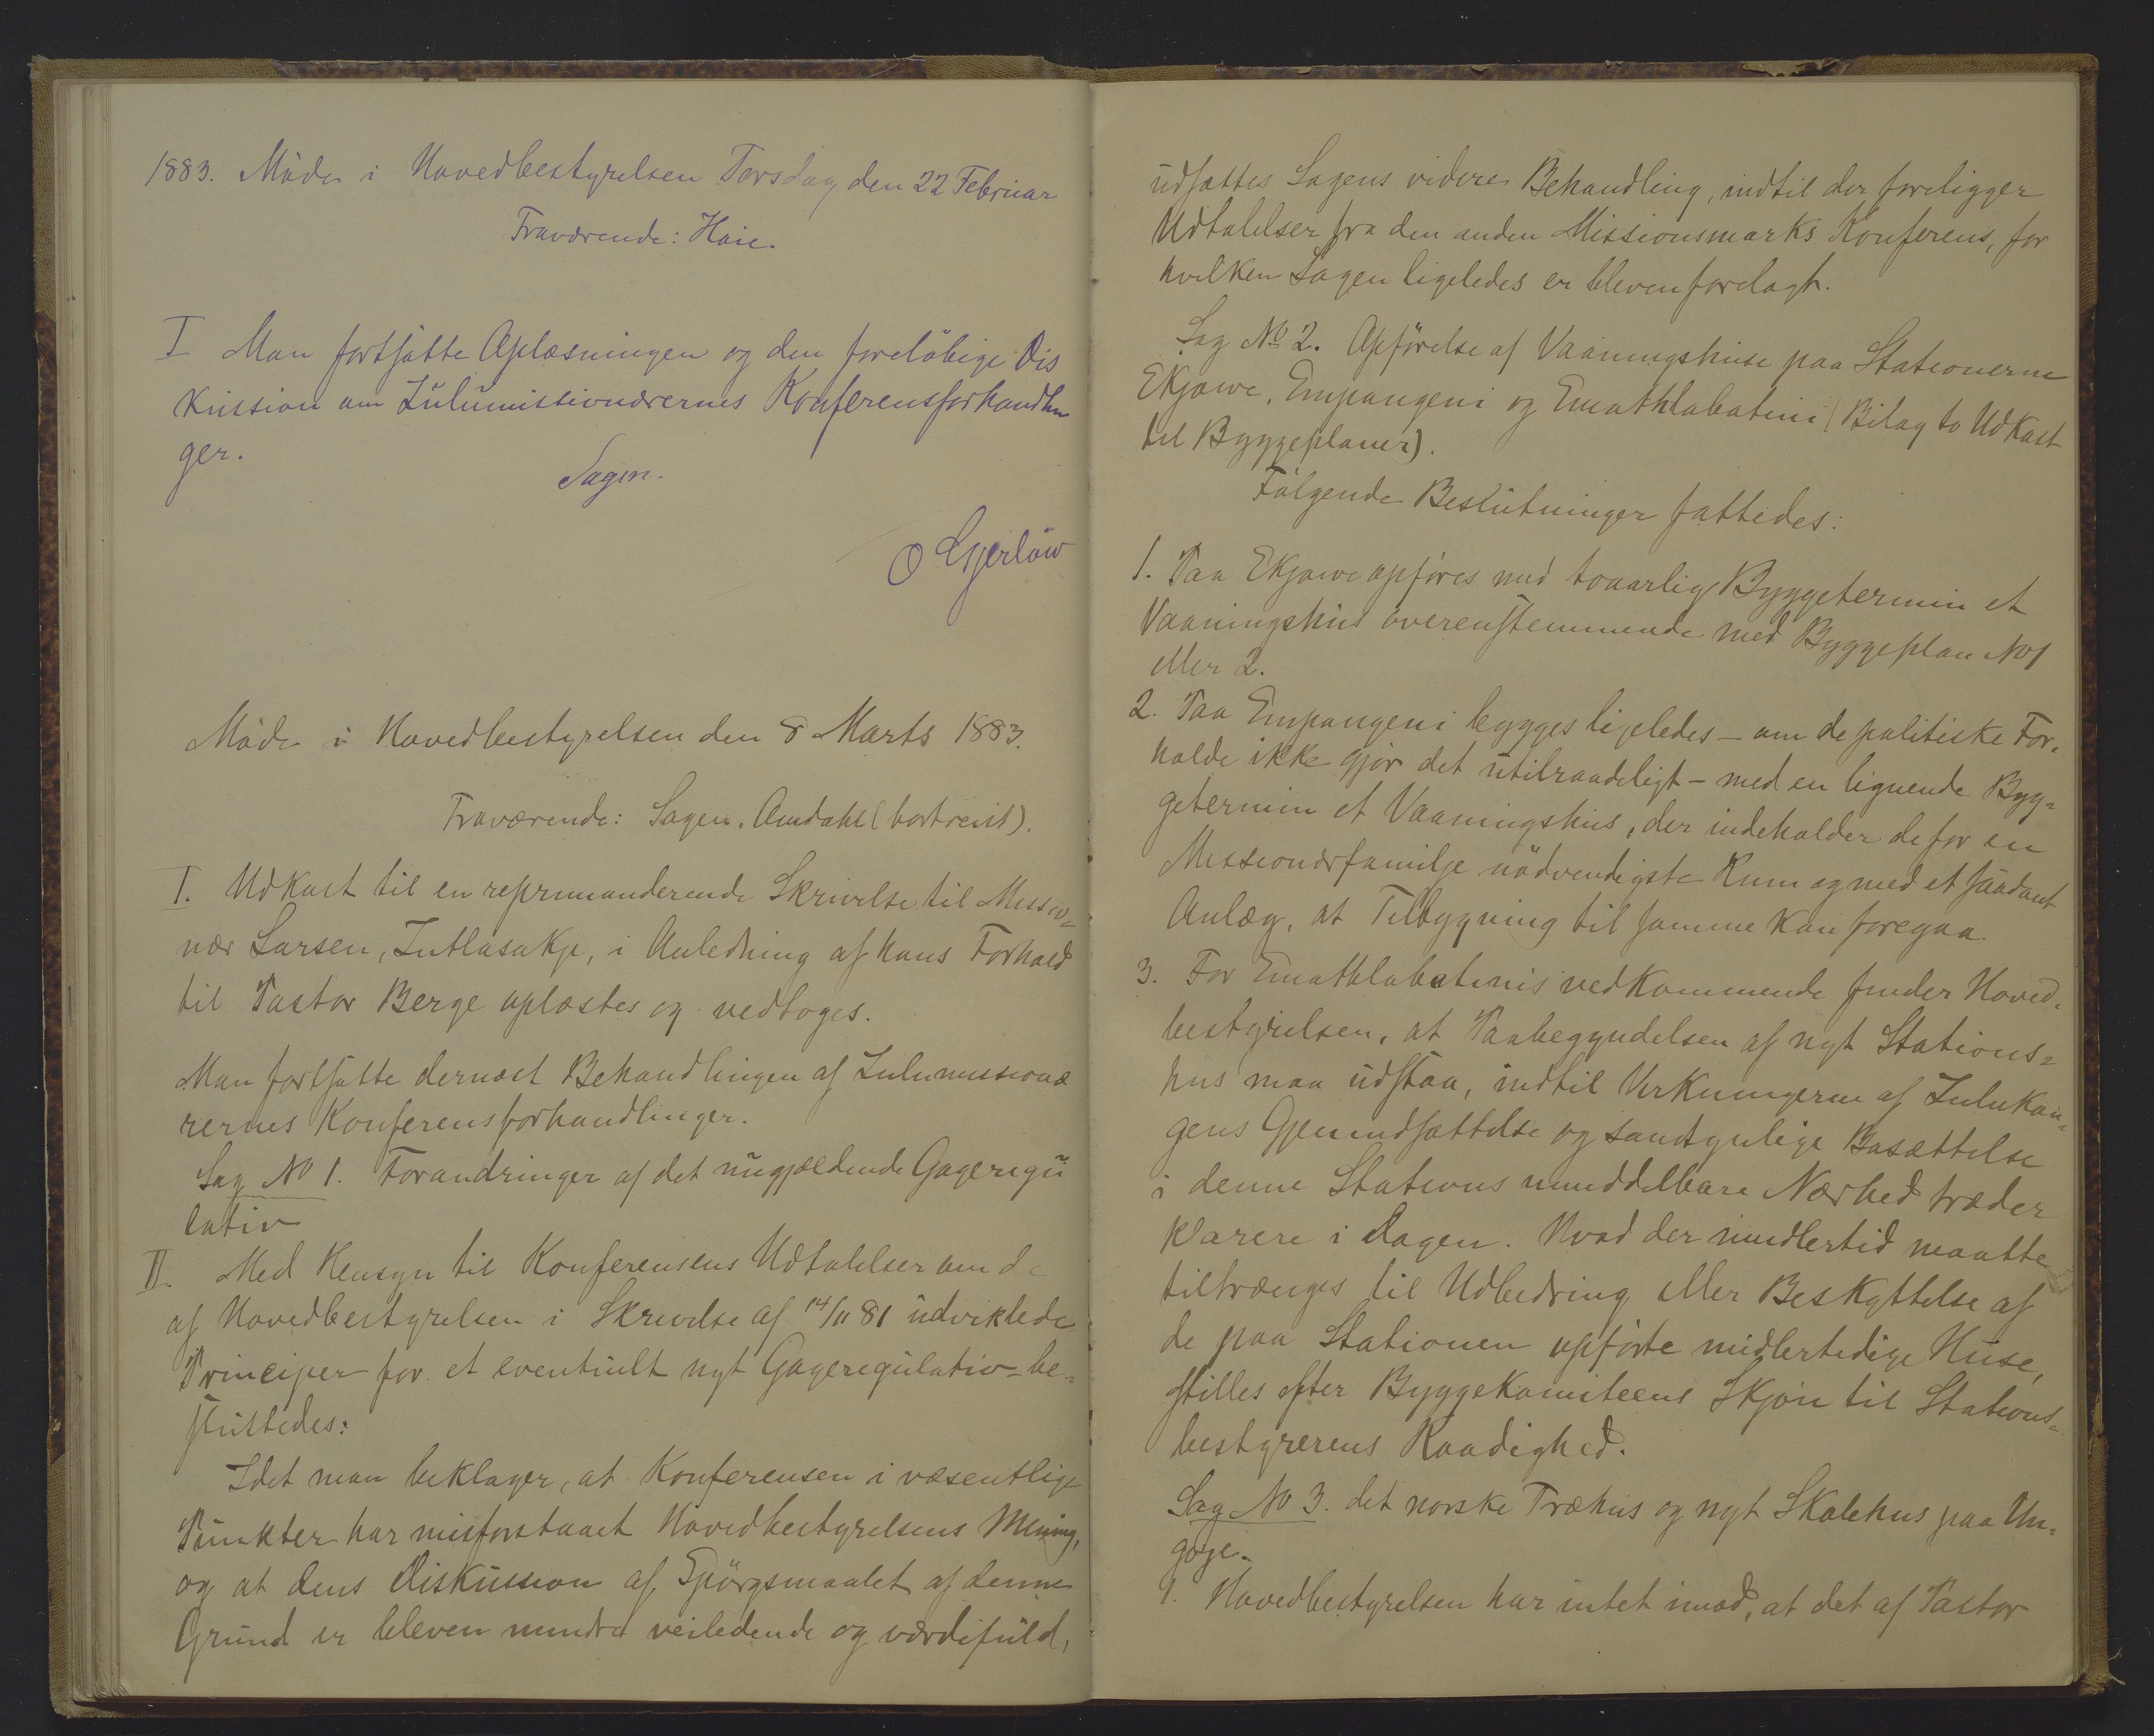 1883. Möde i Hovedbestyrelsen Torsdag den 22 Februar
Fraværende: Haie.
I Man fortsatte Oplæsningen og den foreløbige Dis
kussion om Zulumissionærernes Konferensforhandlin
ger.
Sagen.
O Gjerløw
Möde i Hovedbestyrelsen den 8 Marts 1883.
Fraværende: Sagen. Amdahl (bortreist).
I. Udkast til en reprimanderende Skrivelse til Missio-
nær Larsen, Intlasakje, i Anledning af hans Forhold
til Pastor Berge oplæstes og vedtoges.
Man fortsatte dernæst Behandlingen af Zulumissionæ
rernes Konferensforhandlinger.
Sag No 1. Forandringer af det nugjældende Gageregu
lativ
II. Med Hensyn til Konferensens Udtalelser om de
af Hovedbestyrelsen i Skrivelse af 14/11 81 udviklede
Principer for et eventuelt nyt Gageregulativ - be-
sluttedes:
Idet man beklager, at Konferensen i væsentlige
Punkter har misforstaaet Hovedbestyrelsens Mening,
og at dens Diskussion af Spörgsmaalet af denne
Grund er bleven mindre veiledende og værdifuld,
udsættes Sagens videre Behandling, indtil der foreligger
Udtalelser fra den anden Missionsmarks Konferens, for
hvilken Sagen ligeledes er bleven forelagt.
Sag No 2. Opförelse af Vaaningshuse paa Stationerne
Ekjowe, Empangeni og Emathlabatini (Bilag to Udkast
til Byggeplaner).
Fölgende Beslutninger fattedes:
1. Paa Ekjowe opføres med toaarlig Byggetermin et
Vaaningshus overensstemmende med Byggeplan No 1
eller 2.
2. Paa Empangeni bygges ligeledes - om de politiske For-
holde ikke gjør det utilraadeligt - med en lignende Byg-
getermin et Vaaningshus, der indeholder de for en
Missionærfamilje nödvendigste Rum og med et saadant
Anlæg, at Tilbygning til samme kan foregaa.
3. For Emathlabatinis vedkommende finder Hoved-
bestyrelsen, at Paabegyndelsen af nyt Stations-
hus maa udstaa, indtil Virkningerne af Zulukon-
gens Gjenindsættelse og sandsynlige Bosættelse
i denne Stations umiddelbare Nærhed træder
klarere i Dagen. Hvad der imidlertid maatte
tiltrænges til Udbedring eller Beskyttelse af
de paa Stationen opførte midlertidige Huse,
stilles efter Byggekomiteens Skjøn til Stations-
bestyrerens Raadighed.
Sag No 3. det norske Træhus og nyt Skolehus paa Um-
goje.
1. Hovedbestyrelsen har intet imod, at det af Pastor